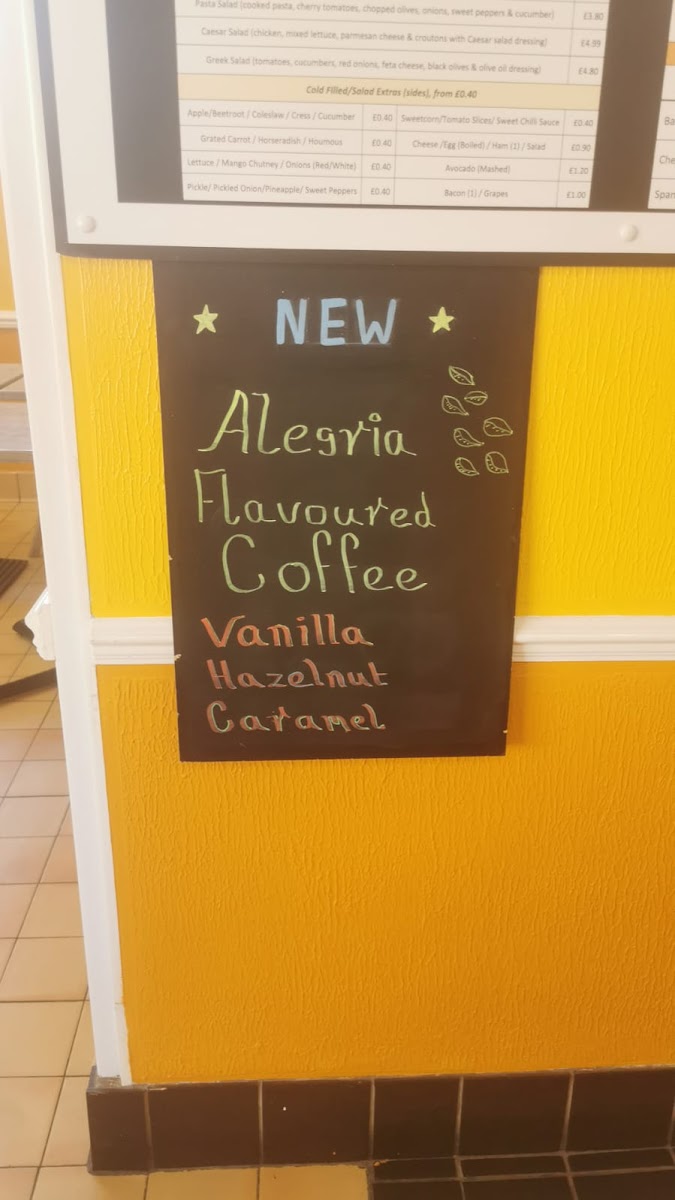 Pasta Salad (cooked pasta, cherry tomatoes, chopped olives, onions, sweet peppers & cucumber) £3.80
Caesar Salad (chicken, mixed lettuce, parmesan cheese & croutons with Caesar salad dressing) £4.99
Greek Salad (tomatoes, cucumbers, red onions, feta cheese, black olives & olive oil dressing) £4.80
Cold Filled/Salad Extras (sides), from £0.40
Apple/Beetroot / Coleslaw / Cress / Cucumber £0.40 Sweetcorn/Tomato Slices/ Sweet Chilli Sauce £0.40
Grated Carrot / Horseradish / Houmous £0.40 Cheese /Egg (Boiled) / Ham (1) / Salad £0.90
Lettuce / Mango Chutney / Onions (Red/White) £0.40 Avocado (Mashed) £1.20
Pickle/ Pickled Onion/Pineapple/ Sweet Peppers £0.40 Bacon (1) / Grapes £1.00
NEW
Alegria
Flavoured
Coffee
Vanilla
Hazelnut
Caramel